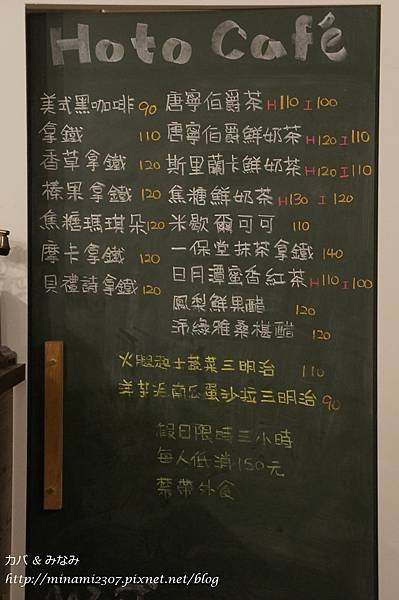 Hoto Café
美式黑咖啡 90
拿鐵 110
香草拿鐵 120
榛果拿鐵 120
焦糖瑪琪朵 120
摩卡拿鐵 120
貝禮詩拿鐵 120
唐寧伯爵茶 H110 I100
唐寧伯爵鮮奶茶 H120 I110
斯里蘭卡鮮奶茶 H120 I110
焦糖鮮奶茶 H130 I120
米歇爾可可 110
一保堂抹茶拿鐵 140
日月潭蜜香紅茶 H110 I100
鳳梨鮮果醋 120
沛綠雅桑椹醋 120
火腿起士蔬菜三明治 110
洋芋泥南瓜蛋沙拉三明治 90
假日限時三小時
每人低消150元
禁帶外食
カバ & みなみ
http://minami2307.pixnet.net/blog